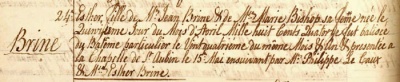 24. Esther, fille de Mr. Jean Brine & de Me. Marie Bishop sa femme née le
Quinzième Jour du Mois d'Avril Mille huit Cents Quatorze fut batisée
Brine du Batême particulier le Vingtquatrieme du même Mois & fut présentée a
la Chapelle de St. Aubin le 15 Mai ensuivant par Mr. Philippe Le Caux
& Me. Esther Brine.